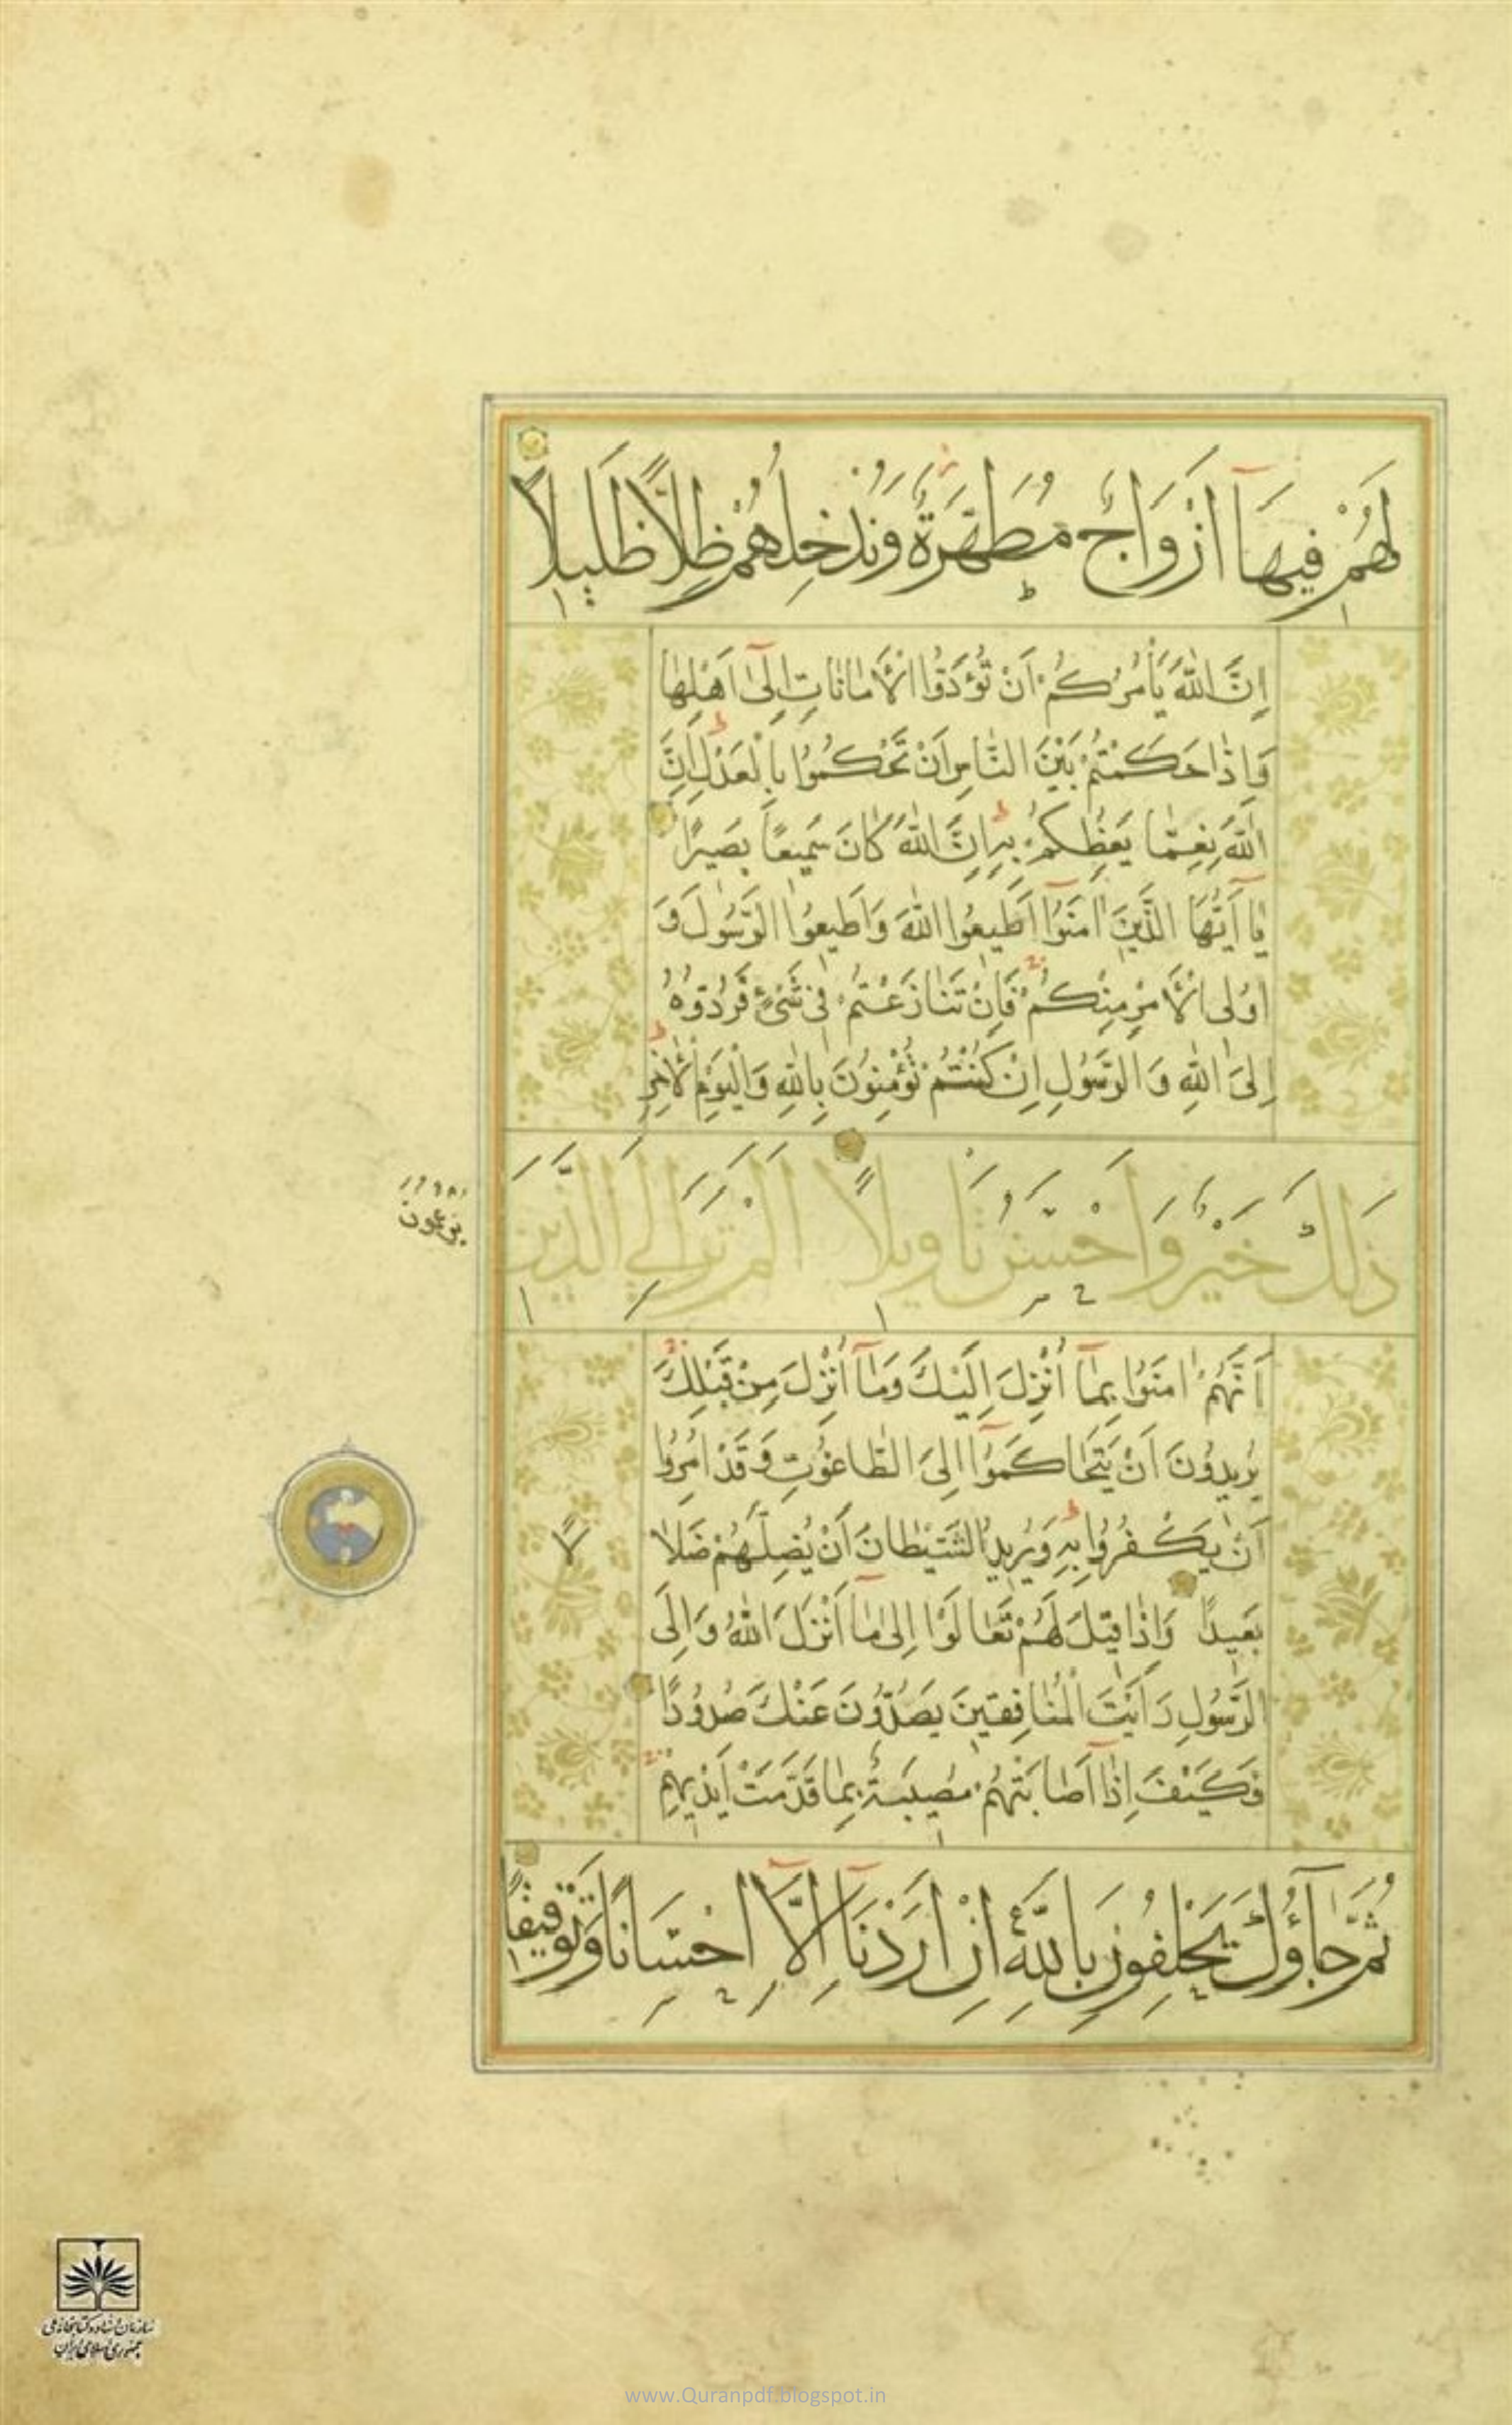 لَهُمْ فِيهَآ اَزْوَاجٌ مُطَهَّرَةٌ وَنُدْخِلُهُمْ ظِلًّا ظَلِيلًا
اِنَّ اللّٰهَ يَأْمُرُكُمْ اَنْ تُؤَدُّوا الْاَمٰانٰاتِ اِلٰٓى اَهْلِهٰا
وَاِذٰا حَكَمْتُمْ بَيْنَ النّٰاسِ اَنْ تَحْكُمُوا بِالْعَدْلِ اِنَّ
اللّٰهَ نِعِمّٰا يَعِظُكُمْ بِهِ اِنَّ اللّٰهَ كٰانَ سَمِيعًا بَصِيرًا
يٰٓا اَيُّهَا الَّذِينَ اٰمَنُوٓا اَطِيعُوا اللّٰهَ وَاَطِيعُوا الرَّسُولَ وَ
اُولِى الْاَمْرِ مِنْكُمْ فَاِنْ تَنٰازَعْتُمْ فِى شَىْءٍ فَرُدُّوهُ
اِلَى اللّٰهِ وَالرَّسُولِ اِنْ كُنْتُمْ تُؤْمِنُونَ بِاللّٰهِ وَالْيَوْمِ الْاٰخِرِ
ذٰلِكَ خَيْرٌ وَاَحْسَنُ تَأْوِيلًا اَلَمْ تَرَ اِلَى الَّذِينَ
يَزْعُمُونَ
اَنَّهُمْ اٰمَنُوا بِمٰٓا اُنْزِلَ اِلَيْكَ وَمٰٓا اُنْزِلَ مِنْ قَبْلِكَ
يُرِيدُونَ اَنْ يَتَحٰاكَمُوٓا اِلَى الطّٰاغُوتِ وَقَدْ اُمِرُوا
اَنْ يَكْفُرُوا بِهِ وَيُرِيدُ الشَّيْطٰانُ اَنْ يُضِلَّهُمْ ضَلٰالًا
بَعِيدًا وَاِذٰا قِيلَ لَهُمْ تَعٰالَوْا اِلىٰ مٰٓا اَنْزَلَ اللّٰهُ وَاِلَى
الرَّسُولِ رَاَيْتَ الْمُنٰافِقِينَ يَصُدُّونَ عَنْكَ صُدُودًا
فَكَيْفَ اِذٰٓا اَصٰابَتْهُمْ مُصِيبَةٌ بِمٰا قَدَّمَتْ اَيْدِيهِمْ
ثُمَّ جَآؤُكَ يَحْلِفُونَ بِاللّٰهِ اِنْ اَرَدْنَآ اِلَّآ اِحْسَانًا وَتَوْفِيقًا
سازمان اسناد و کتابخانه ملی
جمهوری اسلامی ایران
www.Quranpdf.blogspot.in